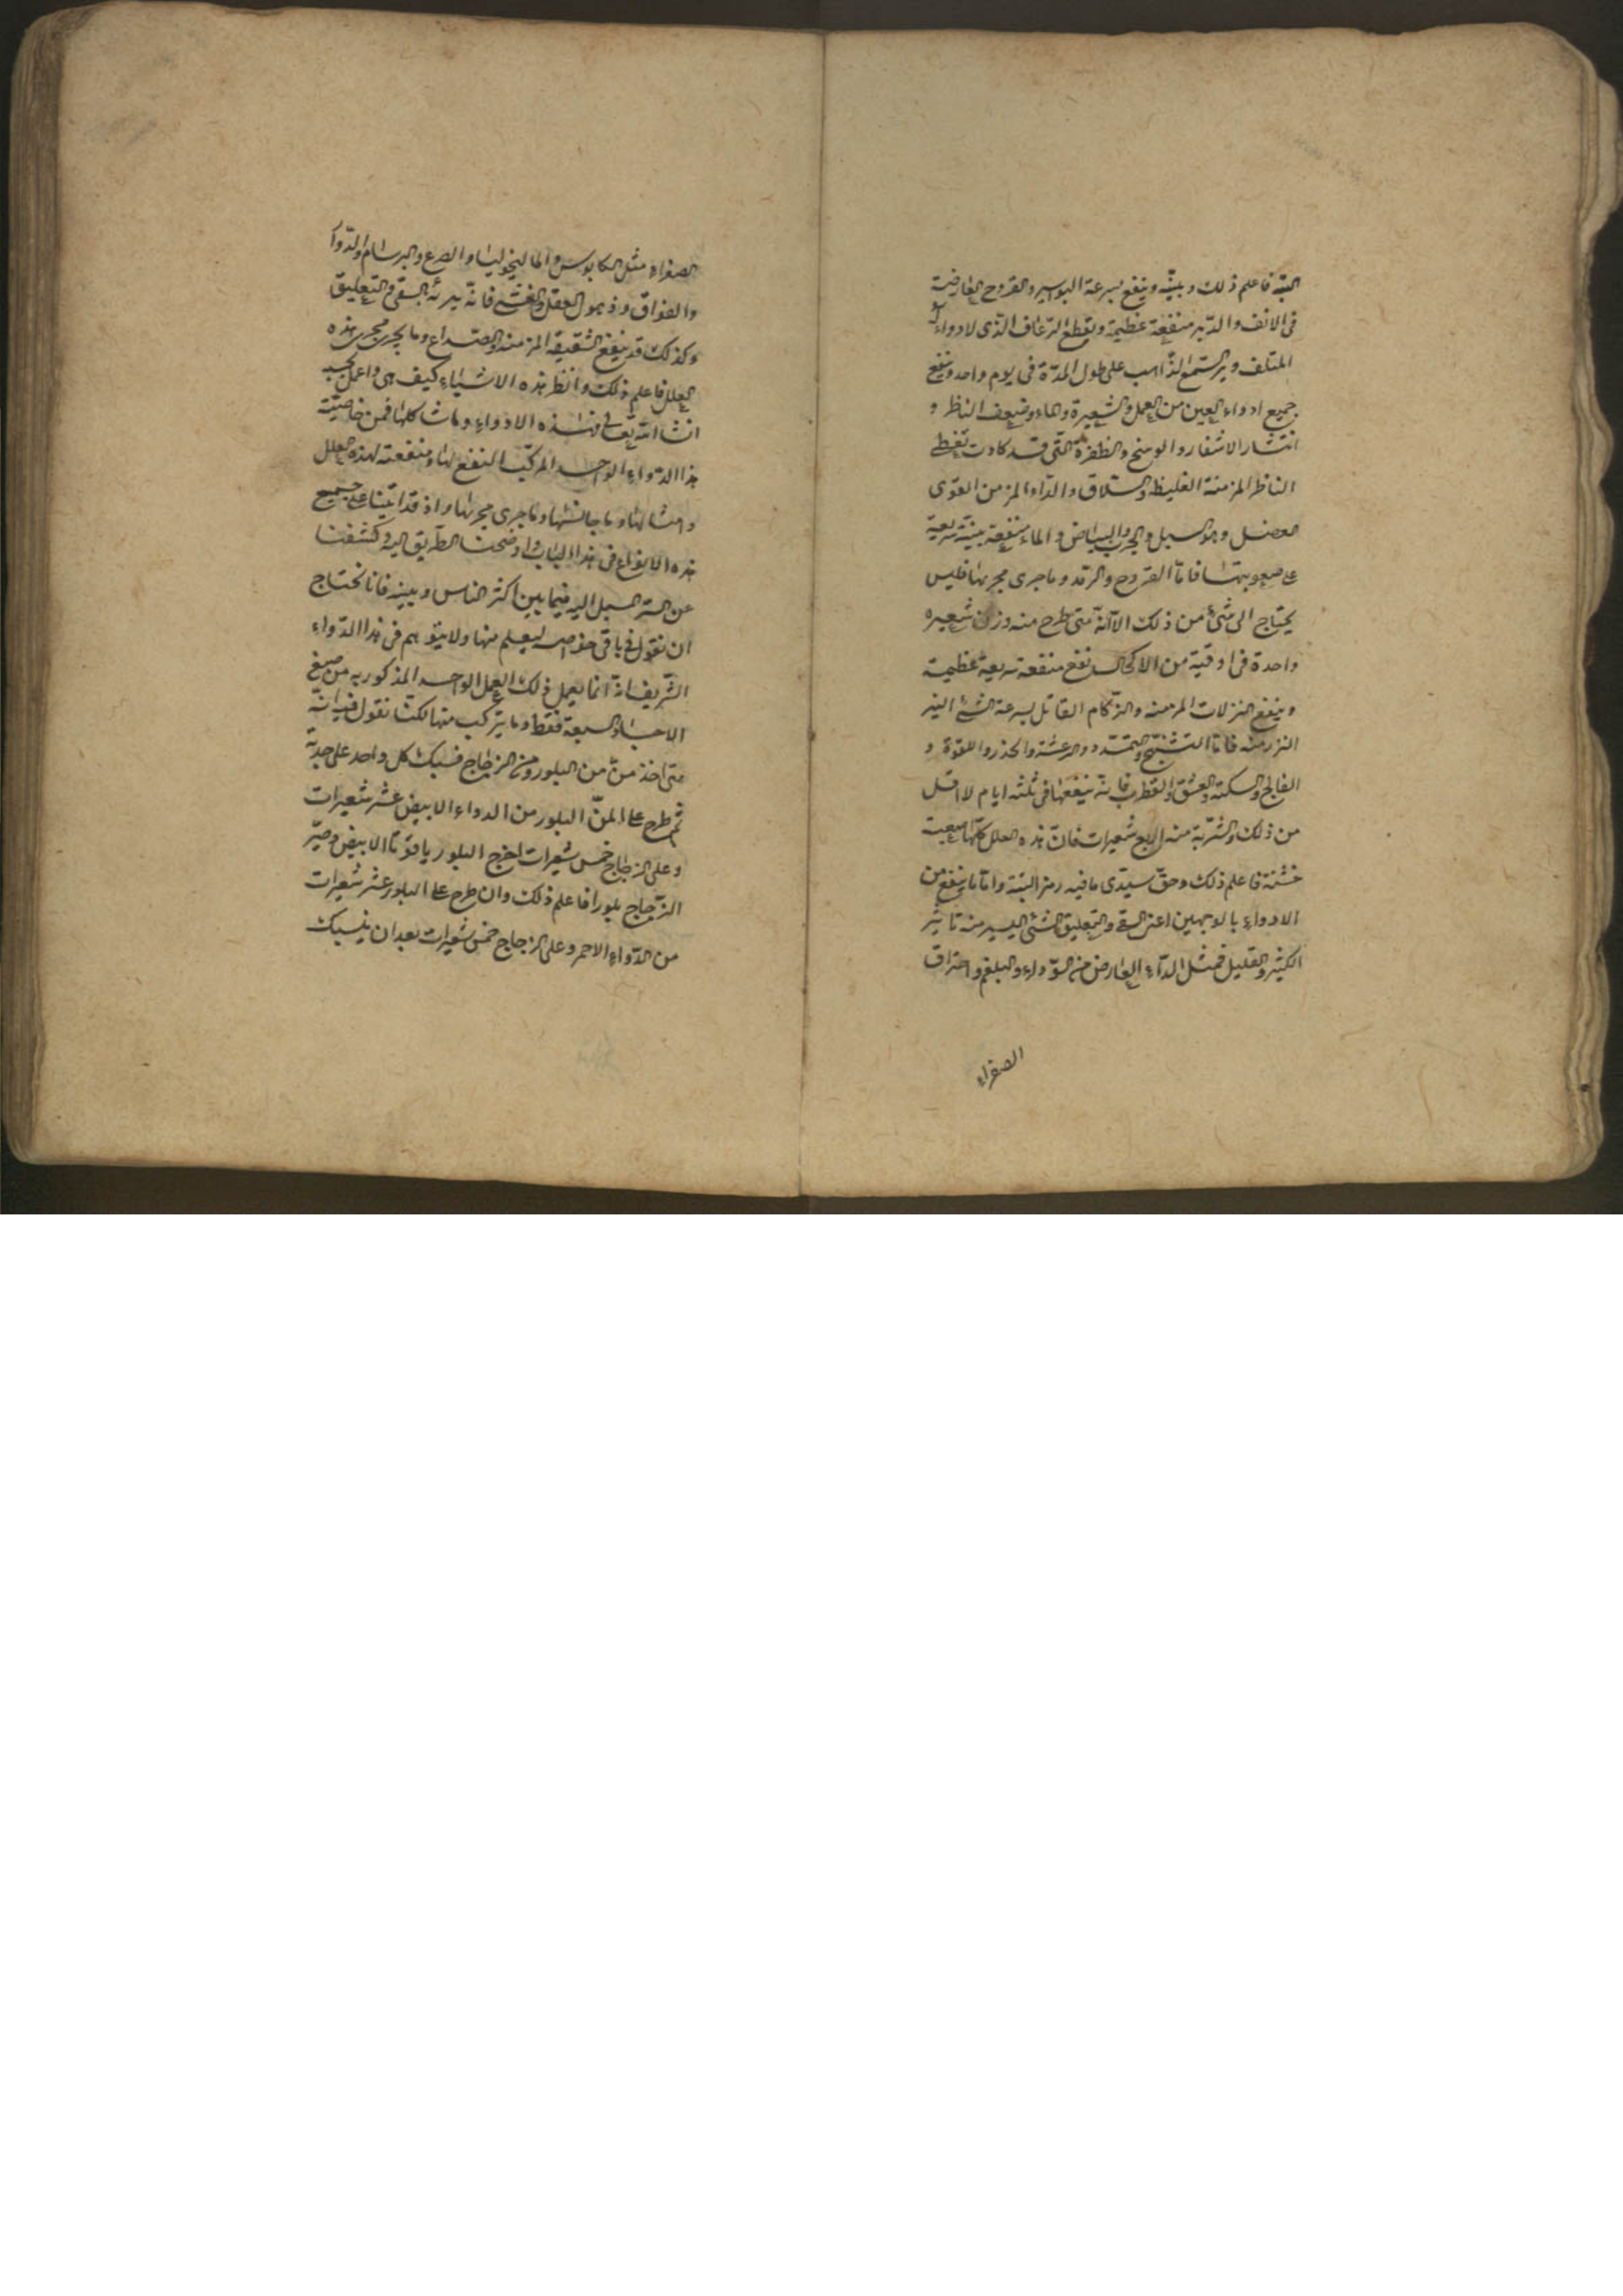 البتة فاعلم ذلك وبينه وينفع بسرعة البواسير والقروح العارضة
فى الانف والدبر منفعة عظيمة ويقطع الرعاف الذى لا دواء له
المتلف ويرد السمع الذاهب على طول المدة فى يوم واحد وينفع
جميع ادواء العين من العمل والشعيرة والماء وضعف الناظر و
انتشار الاشفار والوسخ والظفرة التى قد كادت تغطى
الناظر المزمنة الغليظة والسلاق والداء المزمن القوى
المعضل وهو السبل والجرب والبياض والماء منفعة بينة سريعة
على صعوبتها فاما القروح والرمد وما جرى مجريها فليس
يحتاج الى شئ من ذلك الا انه متى طرح منه وزن شعيره
واحدة فى اوقية من الاكحال نفع منفعة سريعة عظيمة
وينفع النزلات المزمنه والزكام القاتل بسرعة الشئ اليسير
النزر منه فاما التشنج والتمدد والرعشة والخدر واللقوة و
الفالج والسكتة والعشق والقطرب فانه ينفعها فى ثلثه ايام لا اقل
من ذلك والشربة منه اربع شعيرات فان هذه العلل كلها صعبة
خشنة فاعلم ذلك وحق سيدى ما فيه رمز البتة واما ما ينفع من
الادواء بالوجهين اعنى السقى والتعليق الشئ اليسير منه تاثير
الكثير والقليل فمثل الداء العارض من السوداء والبلغم واحتراق
الصفراء
الصفراء مثل الكابوس والماليخوليا والصرع والبرسام والدوار
والفواق وذهول العقل والغشى فانه يبرئه السقى والتعليق
وكذلك قد ينفع الشقيقه المزمنه والصداع وما يجرى مجرى هذه
العلل فاعلم ذلك وانظر هذه الاشياء كيف هى واعمل بحسبه
انشا الله تعالى فهذه الادواء وما شاكلها فمن خاصية
هذا الدواء الواحد المركب النفع لها ومنفعته لهذه العلل
وامثالها وما جانسها وما جرى مجريها واذ قد اتينا على جميع
هذه الانواع فى هذا الباب واوضحنا الطريق اليه وكشفنا
عن الستر المسبل اليه فيما بين اكثر الناس وبينه فانا نحتاج
ان نقول فى باقى خواصه ليعلم منها ولا يتوهم فى هذا الدواء
الشريف انه انما يعمل ذلك العمل الواحد المذكور به من صبغ
الاجساد السبعة فقط وما يتركب منها لكنا نقول فيه انه
متى اخذ من من البلور ومن الزجاج فسبك كل واحد على حدته
ثم طرح على المن البلور من الدواء الابيض عشر شعيرات
وعلى الزجاج خمس شعيرات اخرج البلور ياقوتا الابيض وصير
الزجاج بلورا فاعلم ذلك وان طرح على البلور عشر شعيرات
من الدواء الاحمر وعلى الزجاج خمس شعيرات بعد ان ينسبك